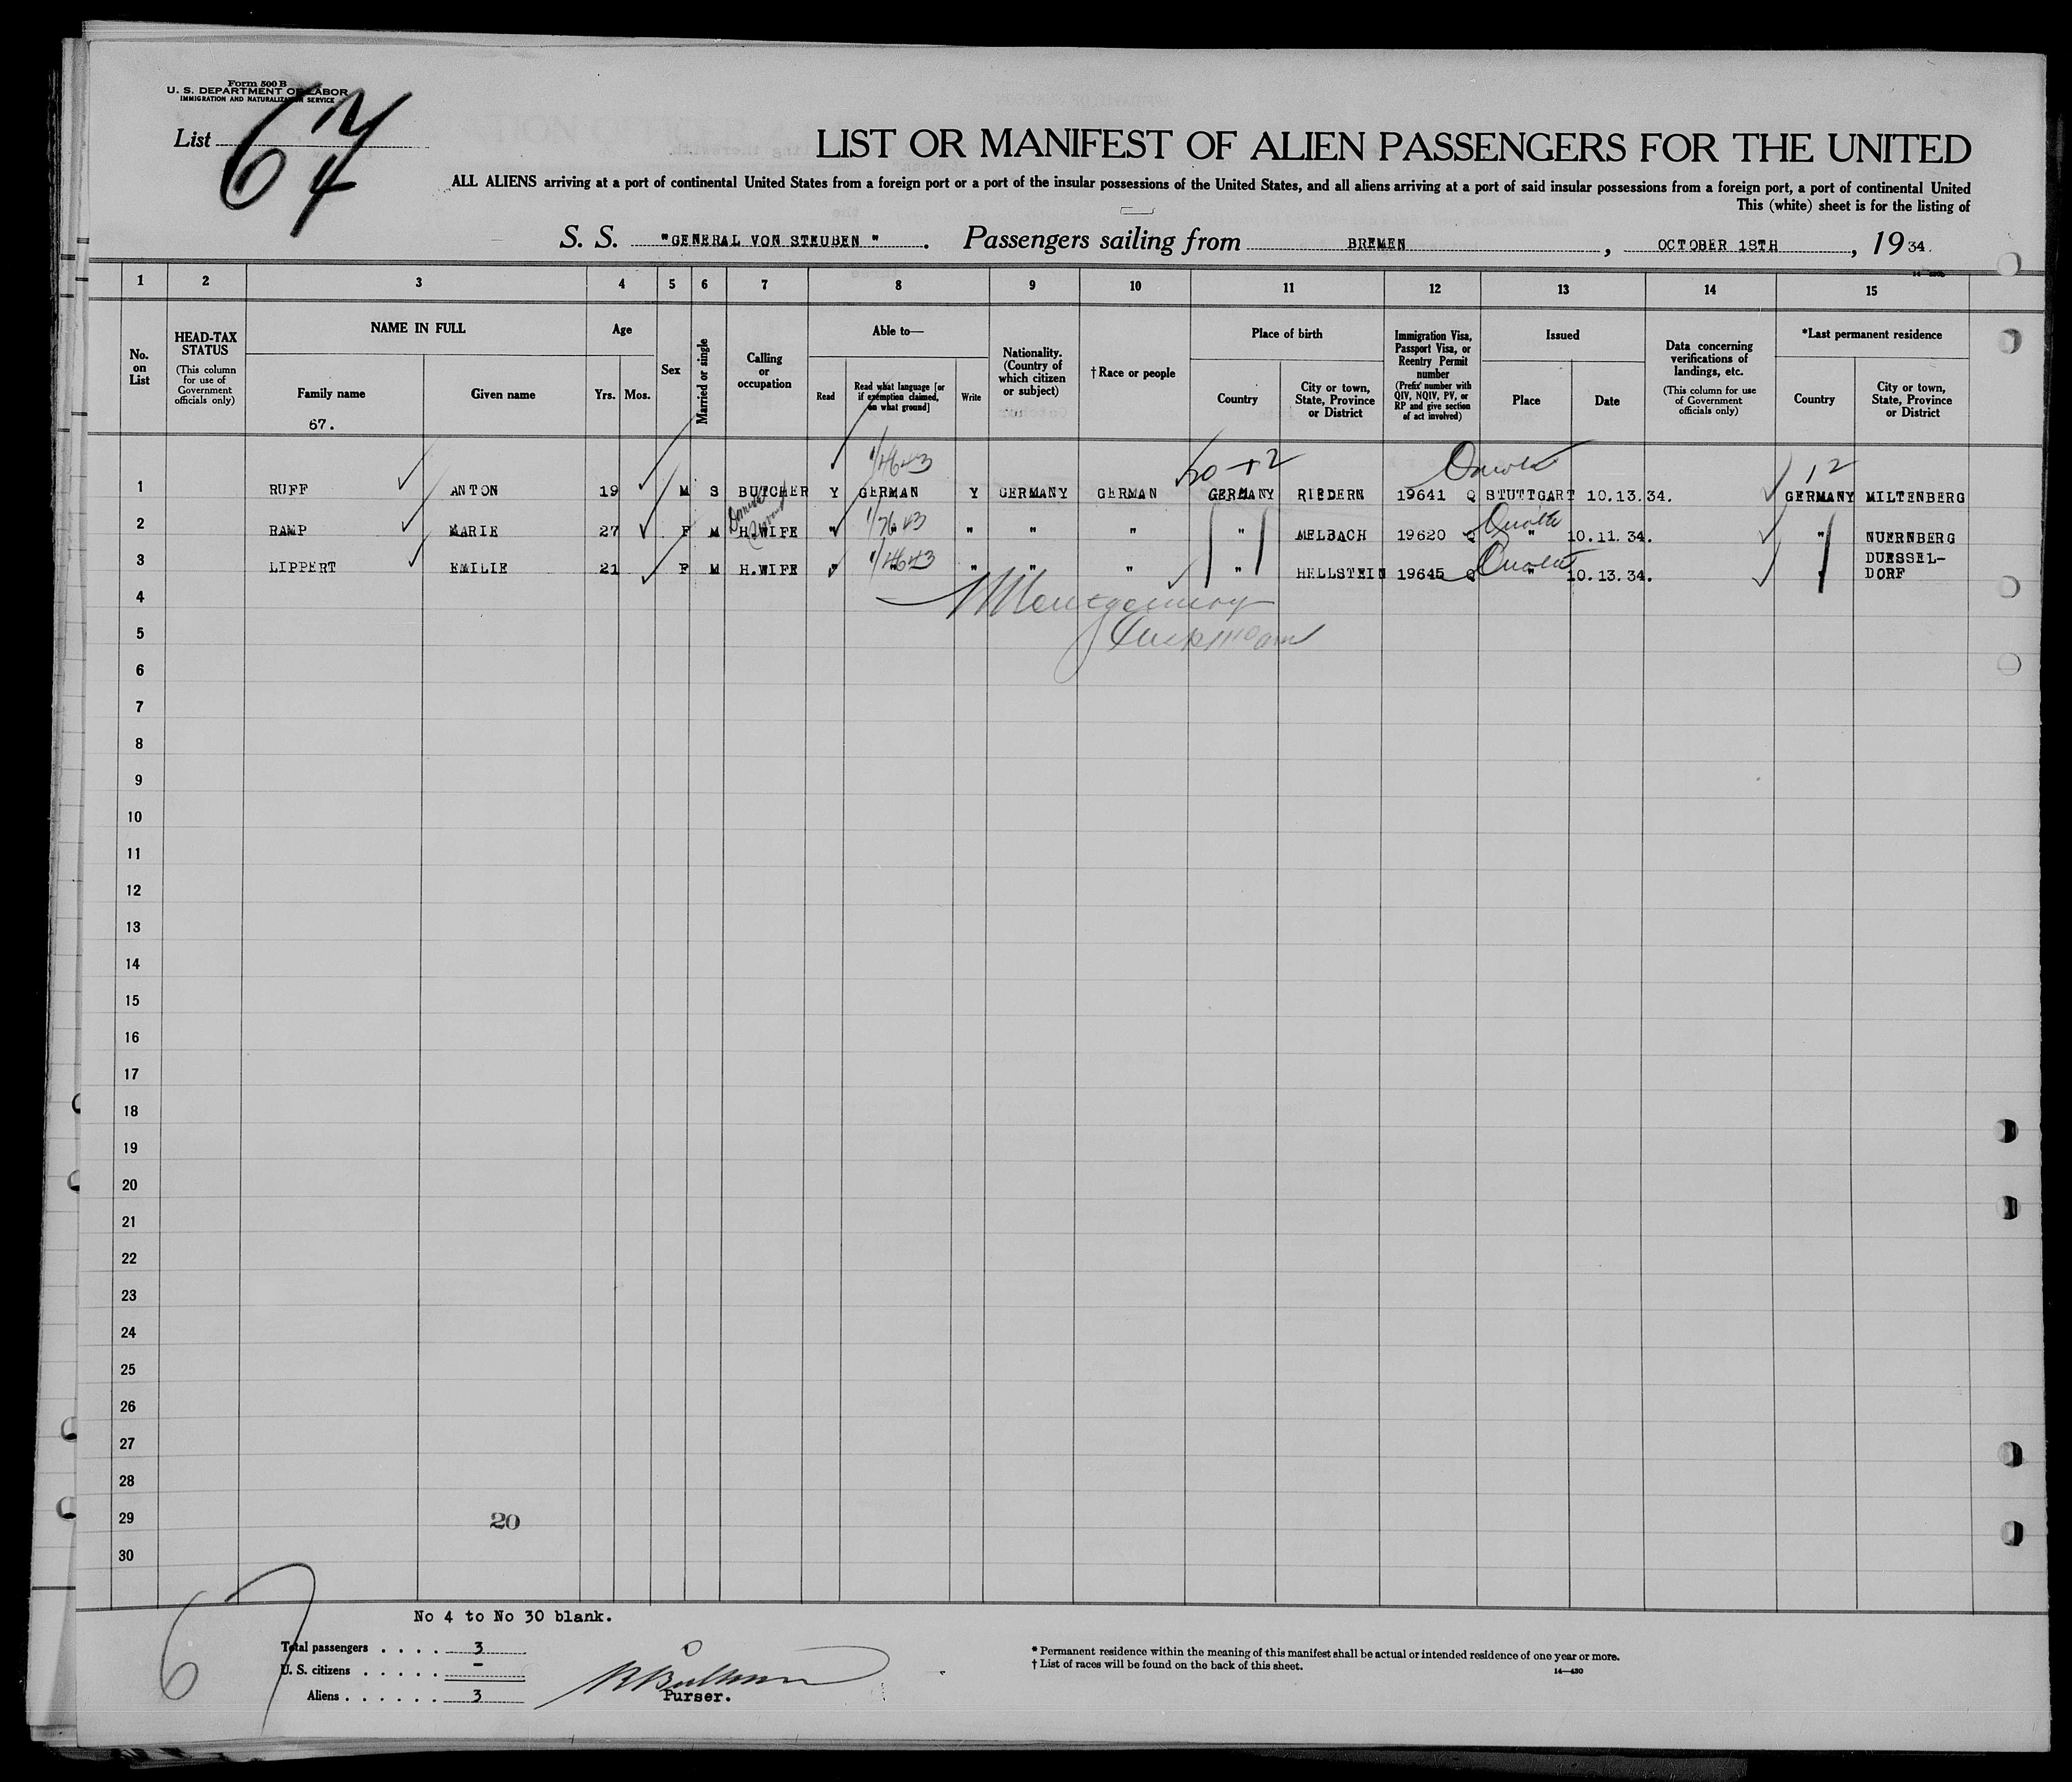 Form 500 B
U. S. DEPARTMENT OF LABOR
IMMIGRATION AND NATURALIZATION SERVICE
List 67
LIST OR MANIFEST OF ALIEN PASSENGERS FOR THE UNITED
ALL ALIENS arriving at a port of continental United States from a foreign port or a port of the insular possessions of the United States, and all aliens arriving at a port of said insular possessions from a foreign port, a port of continental United
This (white) sheet is for the listing of
S. S. "GENERAL VON STEUBEN ". Passengers sailing from BREMEN, OCTOBER 18TH, 1934.
1 2 3 4 5 6 7 8 9 10 11 12 13 14 15
No. on List
HEAD-TAX STATUS
(This column for use of Government officials only)
NAME IN FULL
Family name
Given name
67.
Age
Yrs. Mos.
Sex
Married or single
Calling or occupation
Able to—
Read
Read what language [or if exemption claimed, on what ground]
Write
Nationality. (Country of which citizen or subject)
† Race or people
Place of birth
Country
City or town, State, Province or District
Immigration Visa, Passport Visa, or Reentry Permit number
(Prefix number with QIV, NQIV, PV, or RP and give section of act involved)
Issued
Place
Date
Data concerning verifications of landings, etc.
(This column for use of Government officials only)
*Last permanent residence
Country
City or town, State, Province or District
1 RUFF ANTON 19 M S BUTCHER Y GERMAN Y GERMANY GERMAN GERMANY RIEDERN 19641 Q STUTTGART 10.13.34. GERMANY MILTENBERG
2 RAMP MARIE 27 F M H.WIFE " " " " " " MELBACH 19620 Q " 10.11.34. " NUERNBERG
3 LIPPERT EMILIE 21 F M H.WIFE " " " " " " HELLSTEIN 19645 Q " 10.13.34. " DUESSEL-
DORF
4
Montgomery
5
6
7
8
9
10
11
12
13
14
15
16
17
18
19
20
21
22
23
24
25
26
27
28
29 20
30
67
No 4 to No 30 blank.
Total passengers . . . . 3
U. S. citizens . . . . . -
Aliens . . . . . . 3
Purser.
* Permanent residence within the meaning of this manifest shall be actual or intended residence of one year or more.
† List of races will be found on the back of this sheet.
14—430